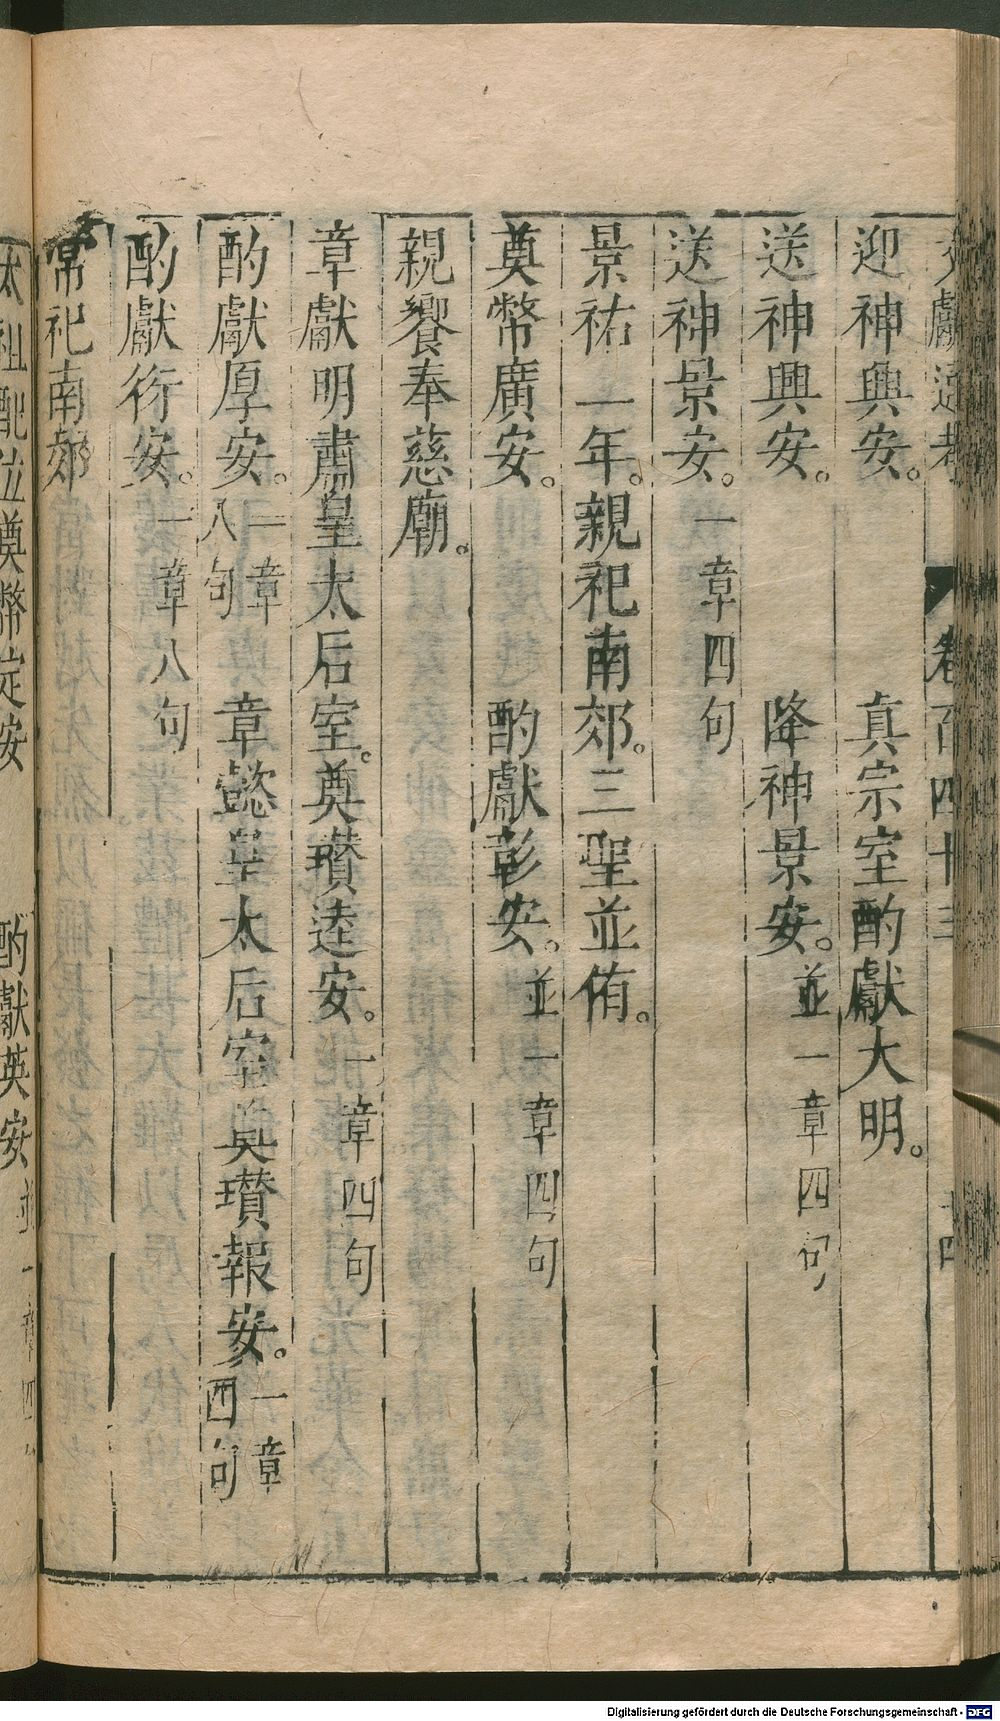 文獻通考 卷百四十三 十四
迎神興安。 真宗室酌獻大明。
送神興安。 降神景安。並一章四句
送神景安。一章四句
景祐一年。親祀南郊。三聖並侑。
奠幣廣安。 酌獻彰安。並一章四句
親饗奉慈廟。
章獻明肅皇太后室。奠瓚達安。一章四句
酌獻厚安。一章八句 章懿皇太后室奠瓚報安。一章四句
酌獻衍安。一章八句
常祀南郊
太祖配位奠幣定安 酌獻英安並一章四句
Digitalisierung gefördert durch die Deutsche Forschungsgemeinschaft - DFG